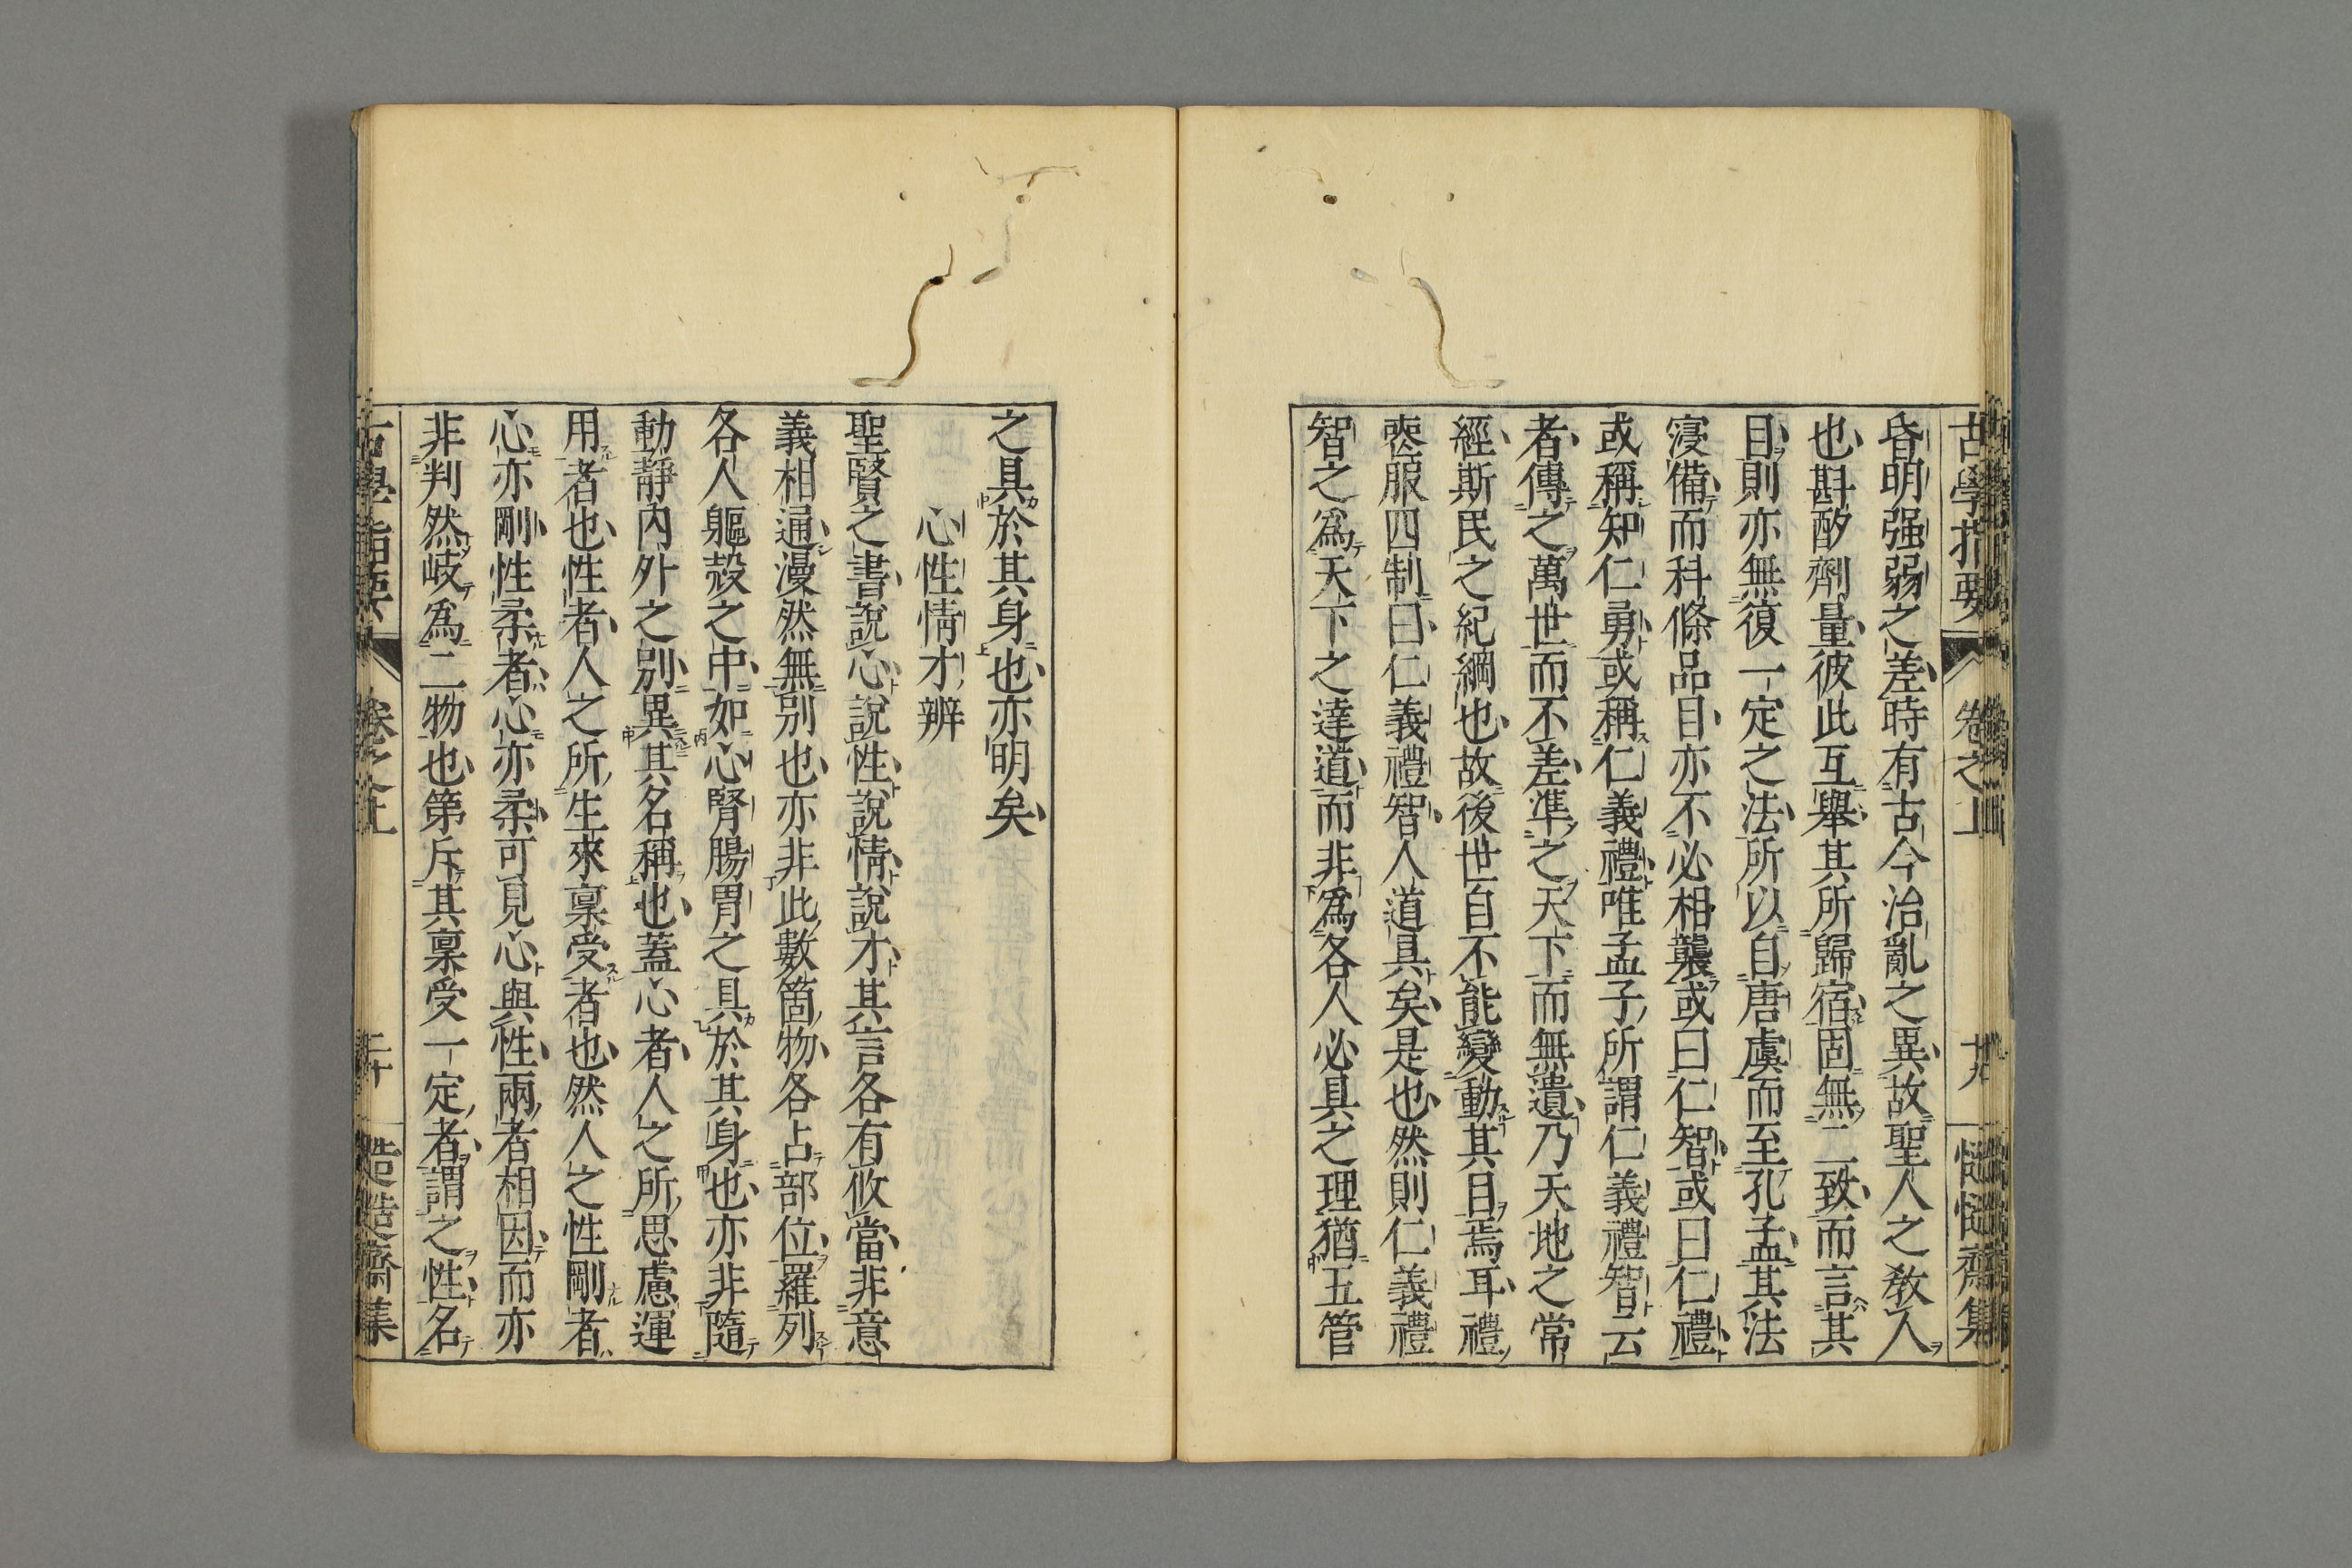 古學指要
卷之上
十九
慥慥齋集
昏明强弱之差時有古今治亂之異故聖人之敎人
也斟酌劑量彼此互擧其所歸宿固無二致而言其
目則亦無復一定之法所以自唐虞而至孔孟其法
寖備而科條品目亦不必相襲或曰仁智或曰仁禮
或稱知仁勇或稱仁義禮唯孟子所謂仁義禮智云
者傳之萬世而不差準之天下而無遺乃天地之常
經斯民之紀綱也故後世自不能變動其目焉耳禮
喪服四制曰仁義禮智人道具矣是也然則仁義禮
智之爲天下之達道而非爲各人必具之理猶五管
之具於其身也亦明矣
心性情才辨
聖賢之書說心說性說情說才其言各有攸當非意
義相通漫然無別也亦非此數箇物各占部位羅列
各人軀殻之中如心腎腸胃之具於其身也亦非隨
動靜內外之別異其名稱也蓋心者人之所思慮運
用者也性者人之所生來稟受者也然人之性剛者
心亦剛性柔者心亦柔可見心與性兩者相因而亦
非判然岐爲二物也第斥其稟受一定者謂之性名
古學指要
卷之上
二十
慥慥齋集